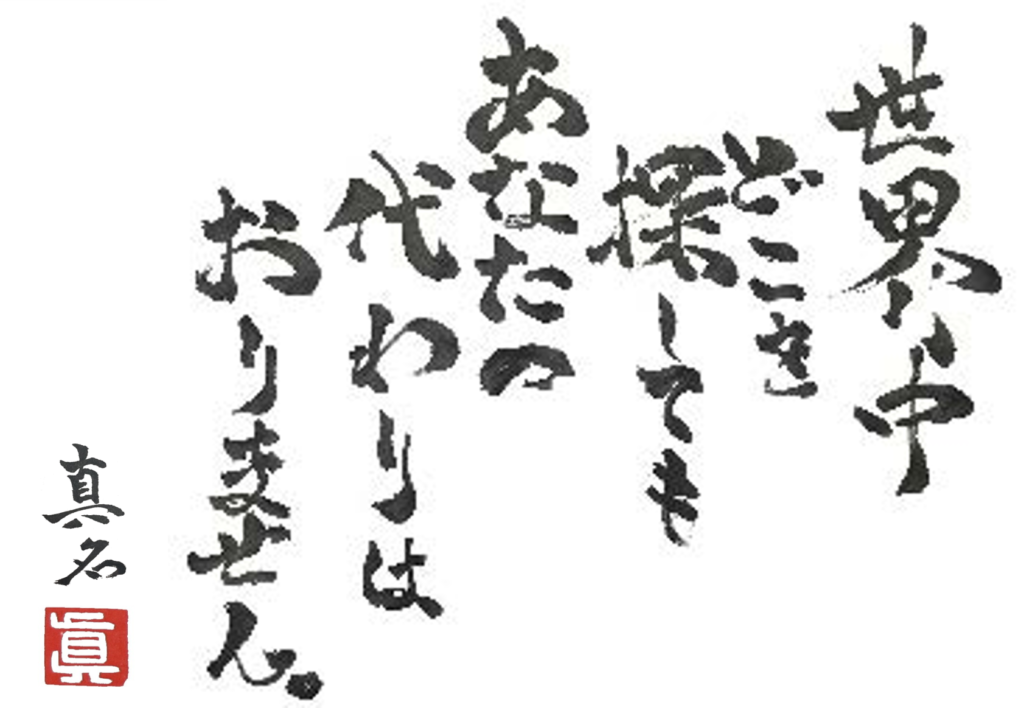 世界中
どこを
探しても
あなたの
代わりは
おりません。
真名
眞